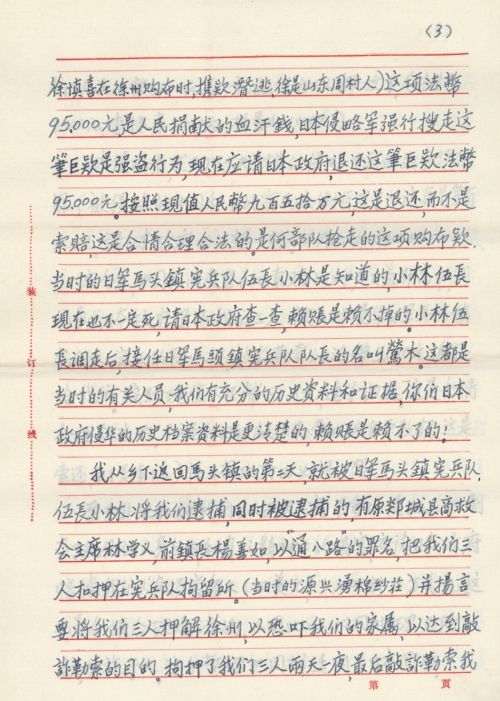 (3)
徐慎喜在徐州购布时，携欵潛逃，徐是山东周村人）这项法幣
95,000元是人民捐献的血汗錢，日本侵略军强行搜走这
筆巨欵是强盗行为，现在应请日本政府，退还这筆巨欵法幣
95,000元。按照现值人民幣九百五拾万元，这是退还，而不是
索赔，这是合情合理合法的。是何部队抢走的这项购布欵，
当时的日军馬头鎮宪兵队伍長小林是知道的，小林伍長
现在也不一定死，请日本政府查一查，赖賬是赖不掉的。小林伍
長调走后，接任日军馬頭鎮宪兵队队長的名叫鶯木。这都是
当时的有关人员，我们有充分的历史资料和证据，你们日本
政府侵华的历史档案资料是更清楚的，赖賬是赖不了的！
我从乡下返回馬头鎮的第二天，就被日军馬头鎮宪兵队，
伍長小林，将我们逮捕，同时被逮捕的，有原郯城县高救
会主席林学义，前鎮長楊善如，以“通八路”的罪名，把我们三
人扣押在宪兵队拘留所。（当时的源兴湧棉纱莊）并揚言
要将我们三人押解徐州，以恐吓我们的家属，以达到敲
詐勒索的目的。拘押了我们三人兩天一夜，最后敲詐勒索我
装
订
线
第 页